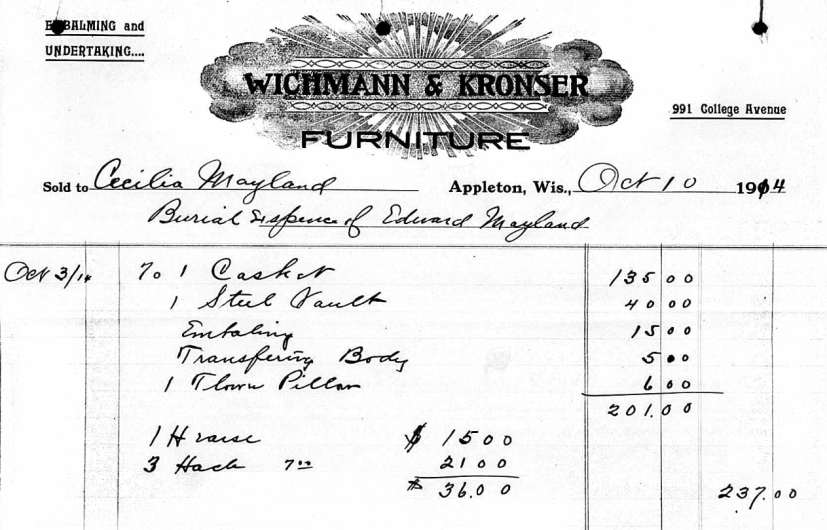 EMBALMING and
UNDERTAKING....
WICHMANN & KRONSER
FURNITURE
991 College Avenue
Sold to Cecilia Mayland Appleton, Wis., Oct 10 1914
Burial Expence of Edward Mayland
Oct 3/14 To 1 Casket 135 00
1 Steel Vault 40 00
Embaling 15 00
Transfering Body 5 00
1 Flown Pillow 6 00
201.00
1 Hraise $ 15 00
3 Hack 7 00 21 00
$ 36.00 237.00